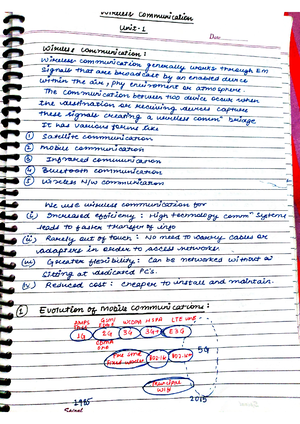 Wireless Communication
Unit-1
Wireless Communication:
Wireless communication generally works through EM
signals that are broadcast by an enabled device
within the air, phy enviroment or atmosphere.
The communication between two device occur when
the destination or receiving devices capture
these signals creating a wireless commn bridge
It has various forms like
① Satellite communication
② Mobile communication
③ Infrared communication
④ Bluetooth communication
⑤ Wireless N/w communication
We use wireless communication for
(i) Increased efficiency : High technology commn systems
leads to faster transfer of info
(ii) Rarely out of touch : No need to carry cables or
adapters in order to access network
(iii) Greater flexibility : Can be networked without
sitting at dedicated PC's.
(iv) Reduced cost : Cheaper to install and maintain.
① Evolution of Mobile Communications :
AMPS GSM WCDMA HSPA LTE
1G 2G 3G 3G+ E3G
CDMA
5G
Fixed WiMAX 802.16
WiFi
1985 2015